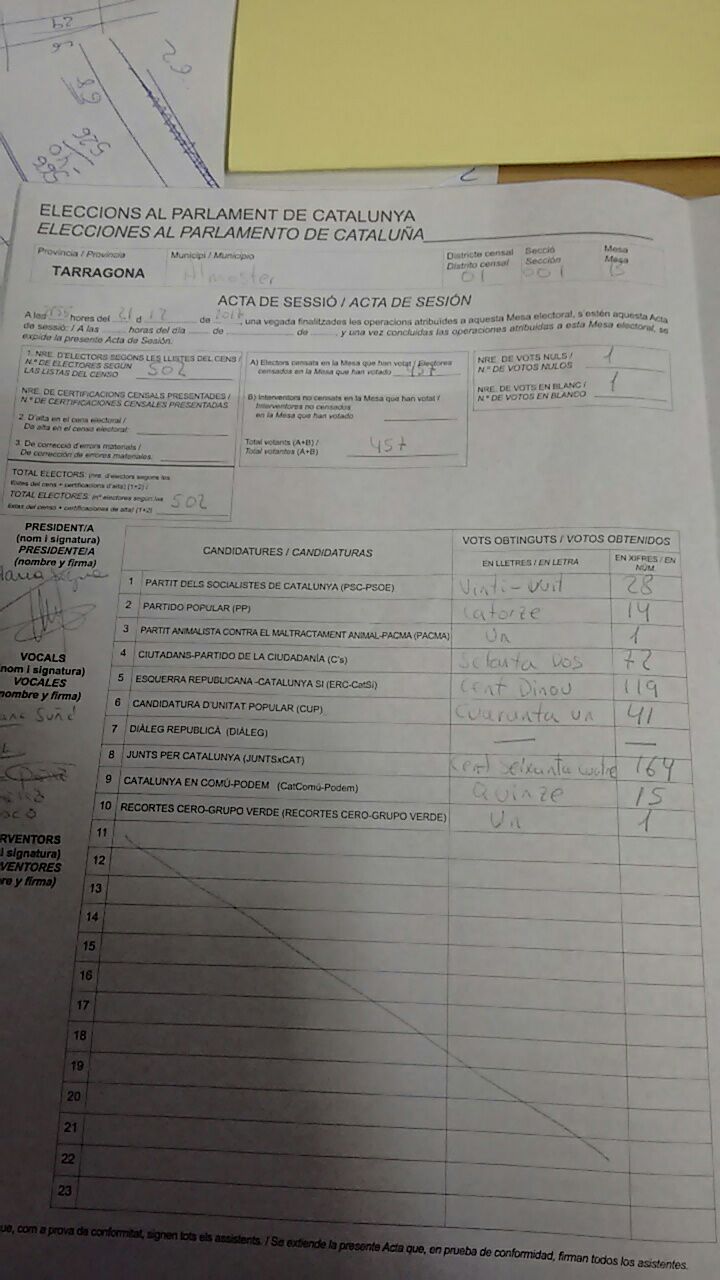 29
56
83
526
40
566
62
ELECCIONS AL PARLAMENT DE CATALUNYA
ELECCIONES AL PARLAMENTO DE CATALUÑA
Província / Provincia
Municipi / Municipio
Districte censal Secció Mesa
Distrito censal Sección Mesa
TARRAGONA Almoster 01 001 B
ACTA DE SESSIÓ / ACTA DE SESIÓN
A les hores del 21 d 12 de 2017, una vegada finalitzades les operacions atribuïdes a aquesta Mesa electoral, s'estén aquesta Acta
de sessió: / A las horas del día de de y una vez concluidas las operaciones atribuidas a esta Mesa electoral, se
expide la presente Acta de Sesión.
1. NRE. D'ELECTORS SEGONS LES LLISTES DEL CENS /
N.º DE ELECTORES SEGÚN
LAS LISTAS DEL CENSO 502
NRE. DE CERTIFICACIONS CENSALS PRESENTADES /
N.º DE CERTIFICACIONES CENSALES PRESENTADAS
2. D'alta en el cens electoral /
De alta en el censo electoral:
3. De correcció d'errors materials /
De corrección de errores materiales:
TOTAL ELECTORS: (nre. d'electors segons les
llistes del cens + certificacions d'alta) (1+2) /
TOTAL ELECTORES: (nº electores según las
listas del censo + certificaciones de alta) (1+2) 502
A) Electors censats en la Mesa que han votat / Electores
censados en la Mesa que han votado 457
B) Interventors no censats en la Mesa que han votat /
Interventores no censados
en la Mesa que han votado
Total votants (A+B) /
Total votantes (A+B) 457
NRE. DE VOTS NULS /
N.º DE VOTOS NULOS 1
NRE. DE VOTS EN BLANC /
N.º DE VOTOS EN BLANCO 1
PRESIDENT/A
(nom i signatura)
PRESIDENTE/A
(nombre y firma)
VOCALS
nom i signatura)
VOCALES
nombre y firma)
Suñé
RVENTORS
i signatura)
VENTORES
re y firma)
CANDIDATURES / CANDIDATURAS
VOTS OBTINGUTS / VOTOS OBTENIDOS
EN LLETRES / EN LETRA
EN XIFRES / EN NÚM.
1 PARTIT DELS SOCIALISTES DE CATALUNYA (PSC-PSOE) Vinti-vuit 28
2 PARTIDO POPULAR (PP) Catorze 14
3 PARTIT ANIMALISTA CONTRA EL MALTRACTAMENT ANIMAL-PACMA (PACMA) Un 1
4 CIUTADANS-PARTIDO DE LA CIUDADANÍA (C's) Setanta Dos 72
5 ESQUERRA REPUBLICANA -CATALUNYA SI (ERC-CatSí) Cent Dinou 119
6 CANDIDATURA D'UNITAT POPULAR (CUP) Cuaranta un 41
7 DIÀLEG REPUBLICÀ (DIÀLEG) — —
8 JUNTS PER CATALUNYA (JUNTSxCAT) Cent seixanta cuatre 164
9 CATALUNYA EN COMÚ-PODEM (CatComú-Podem) Quinze 15
10 RECORTES CERO-GRUPO VERDE (RECORTES CERO-GRUPO VERDE) Un 1
11
12
13
14
15
16
17
18
19
20
21
22
23
ue, com a prova de conformitat, signen tots els assistents. / Se extiende la presente Acta que, en prueba de conformidad, firman todos los asistentes.